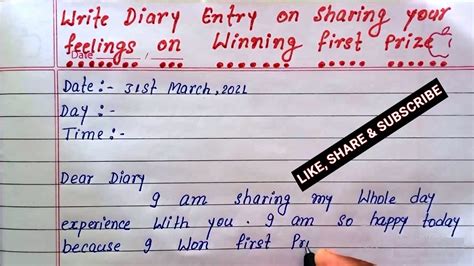 Write Diary Entry on sharing your
feelings on Winning first Prize
Date
Date:- 31st March, 2021
Day:-
Time:-
LIKE, SHARE & SUBSCRIBE
Dear Diary
I am sharing my Whole day
experience With you. I am so happy today
because I Won first Pri